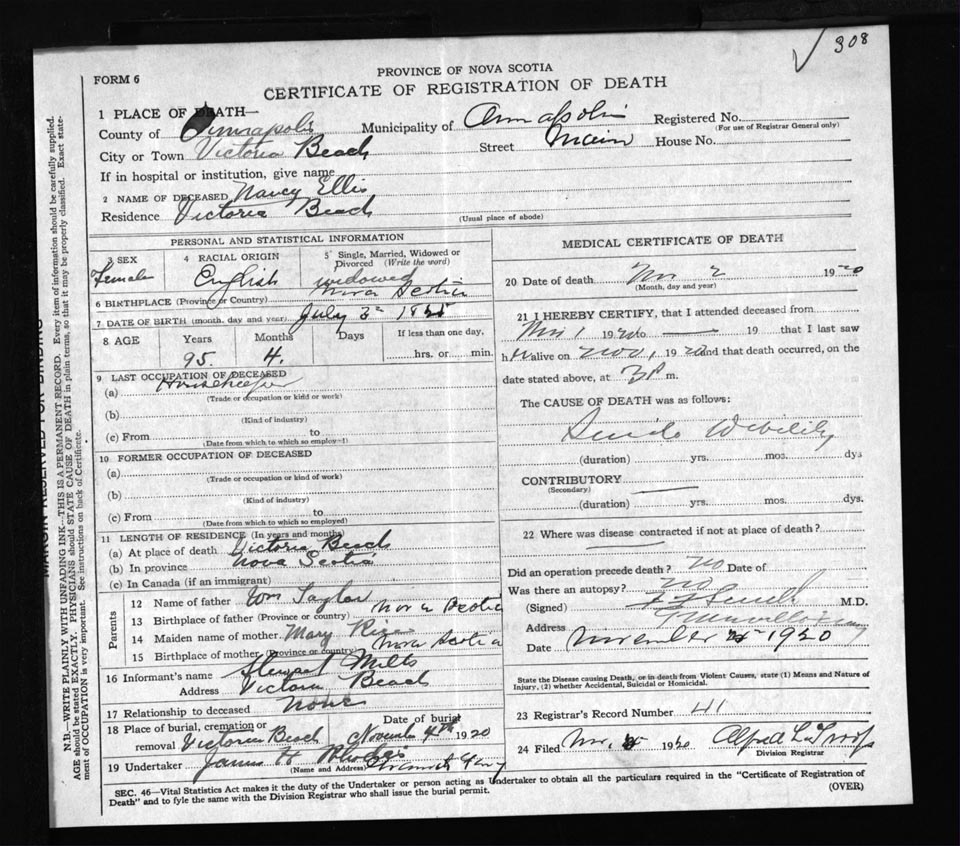 308
FORM 6
PROVINCE OF NOVA SCOTIA
CERTIFICATE OF REGISTRATION OF DEATH
1 PLACE OF DEATH—
County of Annapolis Municipality of Annapolis Registered No.
(For use of Registrar General only)
City or Town Victoria Beach Street Main House No.
If in hospital or institution, give name
2 NAME OF DECEASED Nancy Ellis
Residence Victoria Beach
(Usual place of abode)
PERSONAL AND STATISTICAL INFORMATION
3 SEX 4 RACIAL ORIGIN 5 Single, Married, Widowed or Divorced (Write the word)
Female English widowed
6 BIRTHPLACE (Province or Country) Nova Scotia
7 DATE OF BIRTH (month, day and year) July 3rd 1825
8 AGE Years Months Days If less than one day,
95 4. hrs. or min.
9 LAST OCCUPATION OF DECEASED
(a) Housekeeper
(Trade or occupation or kind or work)
(b)
(Kind of industry)
(c) From to
(Date from which to which so employed)
10 FORMER OCCUPATION OF DECEASED
(a)
(Trade or occupation or kind of work)
(b)
(Kind of industry)
(c) From to
(Date from which to which so employed)
11 LENGTH OF RESIDENCE (In years and months)
(a) At place of death Victoria Beach
(b) In province Nova Scotia
(c) In Canada (if an immigrant)
Parents
12 Name of father Wm Taylor
13 Birthplace of father (Province or country) Nova Scotia
14 Maiden name of mother Mary Rice
15 Birthplace of mother (Province or country) Nova Scotia
16 Informant's name Stewart Mills
Address Victoria Beach
17 Relationship to deceased None
18 Place of burial, cremation or removal Victoria Beach Date of burial November 4th 1920
19 Undertaker James H
(Name and Address)
MEDICAL CERTIFICATE OF DEATH
20 Date of death Nov 2 1920
(Month, day and year)
21 I HEREBY CERTIFY, that I attended deceased from
Nov 1 1920 to — 19 that I last saw
h er alive on Nov 1 1920 and that death occurred, on the
date stated above, at 3 P m.
The CAUSE OF DEATH was as follows:
Senile Debility
(duration) yrs. mos. dys
CONTRIBUTORY
(Secondary)
(duration) yrs. mos. dys.
22 Where was disease contracted if not at place of death?
Did an operation precede death? no Date of
Was there an autopsy? no
(Signed) M.D.
Address
Date November 1920
State the Disease causing Death, or in death from Violent Causes, state (1) Means and Nature of
Injury, (2) whether Accidental, Suicidal or Homicidal.
23 Registrar's Record Number 41
24 Filed Nov. 1920 Alfred
Division Registrar
SEC. 46—Vital Statistics Act makes it the duty of the Undertaker or person acting as Undertaker to obtain all the particulars required in the "Certificate of Registration of
Death" and to fyle the same with the Division Registrar who shall issue the burial permit. (OVER)
MARGIN RESERVED FOR BINDING
N.B.—WRITE PLAINLY WITH UNFADING INK—THIS IS A PERMANENT RECORD. Every item of information should be carefully supplied.
AGE should be stated EXACTLY. PHYSICIANS should STATE CAUSE OF DEATH in plain terms, so that it may be properly classified. Exact state-
ment of OCCUPATION is very important. See instructions on back of Certificate.